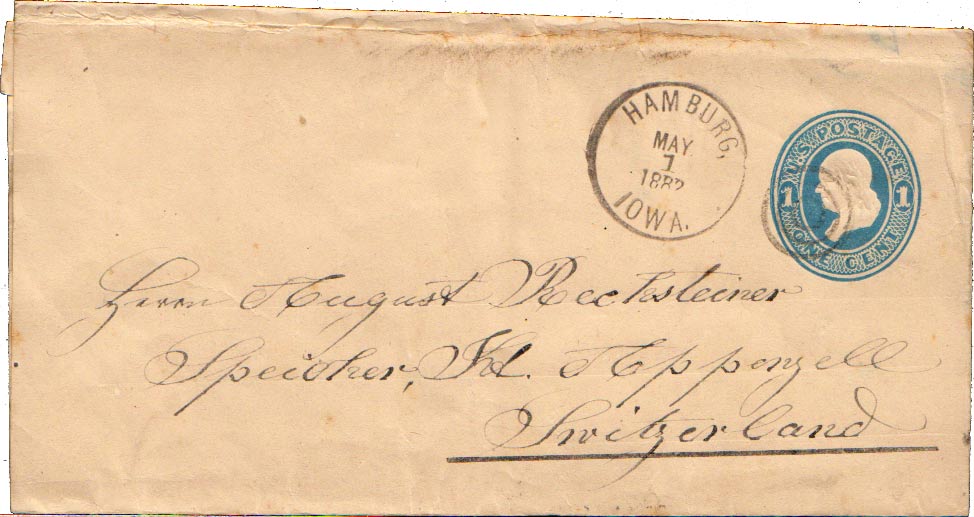 HAMBURG,
MAY
7
1882
IOWA.
U.S. POSTAGE
1 1
ONE CENT
Herrn August Rechsteiner
Speicher, Kt. Appenzell
Switzerland